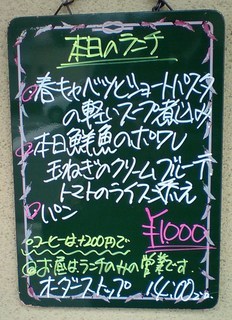 本日のランチ
春キャベツとショートパスタ
の軽いスープ煮込み
本日鮮魚のポワレ
玉ねぎのクリームブルーテ
トマトのライス添え
パン
¥1000
コーヒーは+200円で
お昼はランチのみの営業です。
オーダーストップ 14:00